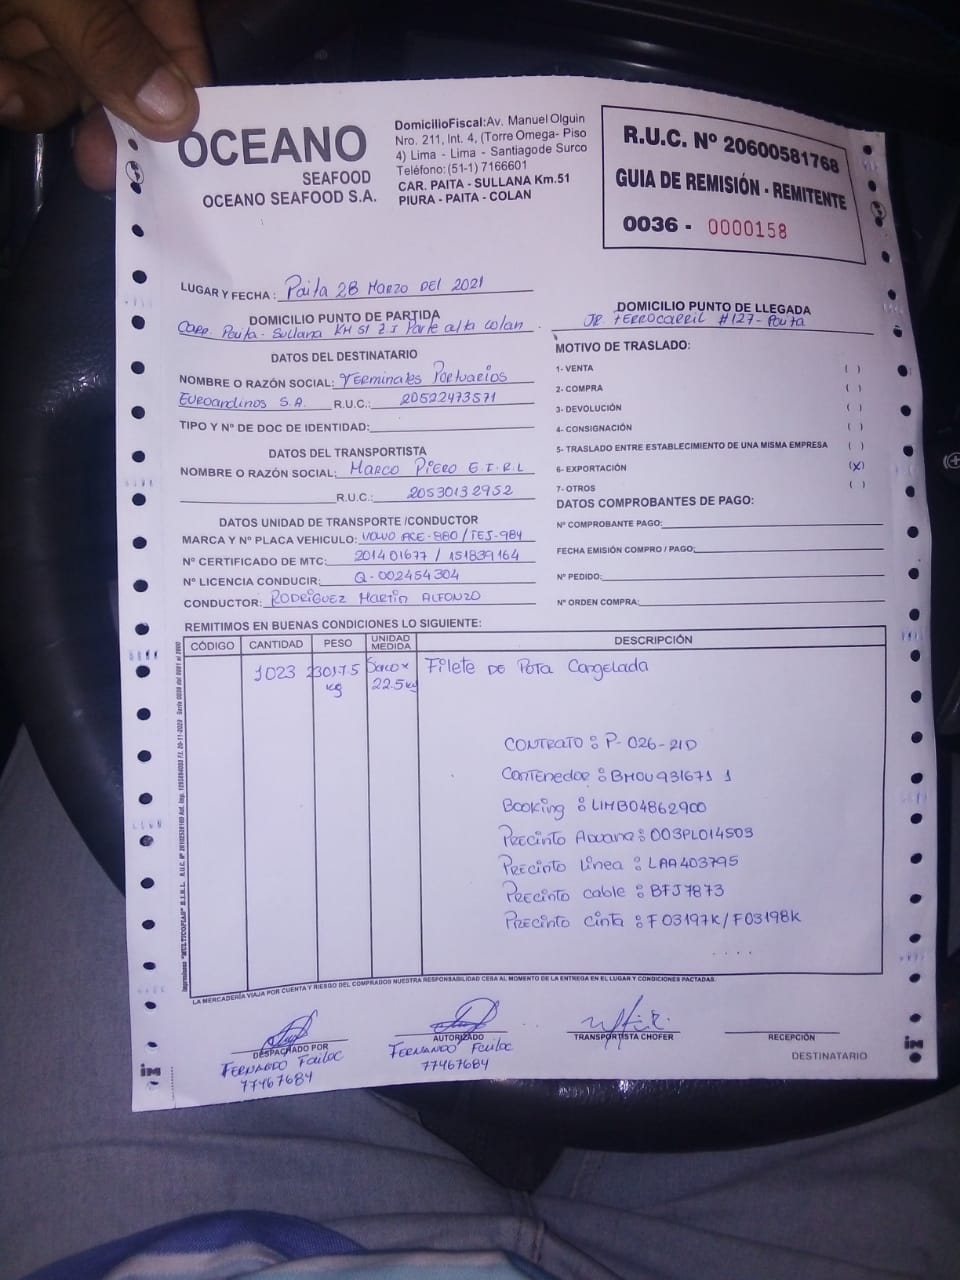 OCEANO
SEAFOOD
OCEANO SEAFOOD S.A.
DomicilioFiscal:Av. Manuel Olguin
Nro. 211, Int. 4, (Torre Omega- Piso
4) Lima - Lima - Santiagode Surco
Teléfono:(51-1) 7166601
CAR. PAITA - SULLANA Km.51
PIURA - PAITA - COLAN
R.U.C. Nº 20600581768
GUIA DE REMISIÓN - REMITENTE
0036 - 0000158
LUGAR Y FECHA : Paita 28 Marzo DEL 2021
DOMICILIO PUNTO DE PARTIDA
Carr. Paita - Sullana KM 51 Z.I Parte alta colan
DOMICILIO PUNTO DE LLEGADA
JR. FERROCARRIL #127- Paita
DATOS DEL DESTINATARIO
NOMBRE O RAZÓN SOCIAL: Terminales Portuarios
Euroandinos S.A. R.U.C.: 20522473571
TIPO Y Nº DE DOC DE IDENTIDAD:
DATOS DEL TRANSPORTISTA
NOMBRE O RAZÓN SOCIAL: MARCO PIERO E.I.R.L
R.U.C.: 20530132952
DATOS UNIDAD DE TRANSPORTE /CONDUCTOR
MARCA Y Nº PLACA VEHICULO: VOLVO ACE-880 / TEJ-984
Nº CERTIFICADO DE MTC: 201401677 / 151839164
Nº LICENCIA CONDUCIR: Q-002454304
CONDUCTOR: RODRIGUEZ Martin ALFONZO
MOTIVO DE TRASLADO:
1- VENTA ( )
2- COMPRA ( )
3- DEVOLUCIÓN ( )
4- CONSIGNACIÓN ( )
5- TRASLADO ENTRE ESTABLECIMIENTO DE UNA MISMA EMPRESA ( )
6- EXPORTACIÓN (x)
7- OTROS ( )
DATOS COMPROBANTES DE PAGO:
Nº COMPROBANTE PAGO:
FECHA EMISIÓN COMPRO / PAGO:
Nº PEDIDO:
Nº ORDEN COMPRA:
REMITIMOS EN BUENAS CONDICIONES LO SIGUIENTE:
CÓDIGO CANTIDAD PESO UNIDAD MEDIDA DESCRIPCIÓN
1023 23017.5 Saco x Filete DE POTA Congelada
kg 22.5kg
CONTRATO : P-026-21D
Contenedor : BMOU931671 1
Booking : LIMB04862900
Precinto Aduana : 003PL014503
Precinto Línea : LAA403795
Precinto cable : BFJ7873
Precinto cinta : F03197K/F03198K
LA MERCADERÍA VIAJA POR CUENTA Y RIESGO DEL COMPRADOS NUESTRA RESPONSABILIDAD CESA AL MOMENTO DE LA ENTREGA EN EL LUGAR Y CONDICIONES PACTADAS.
DESPACHADO POR
FERNANDO
77467684
AUTORIZADO
FERNANDO
77467684
TRANSPORTISTA CHOFER
RECEPCIÓN
DESTINATARIO
im
im